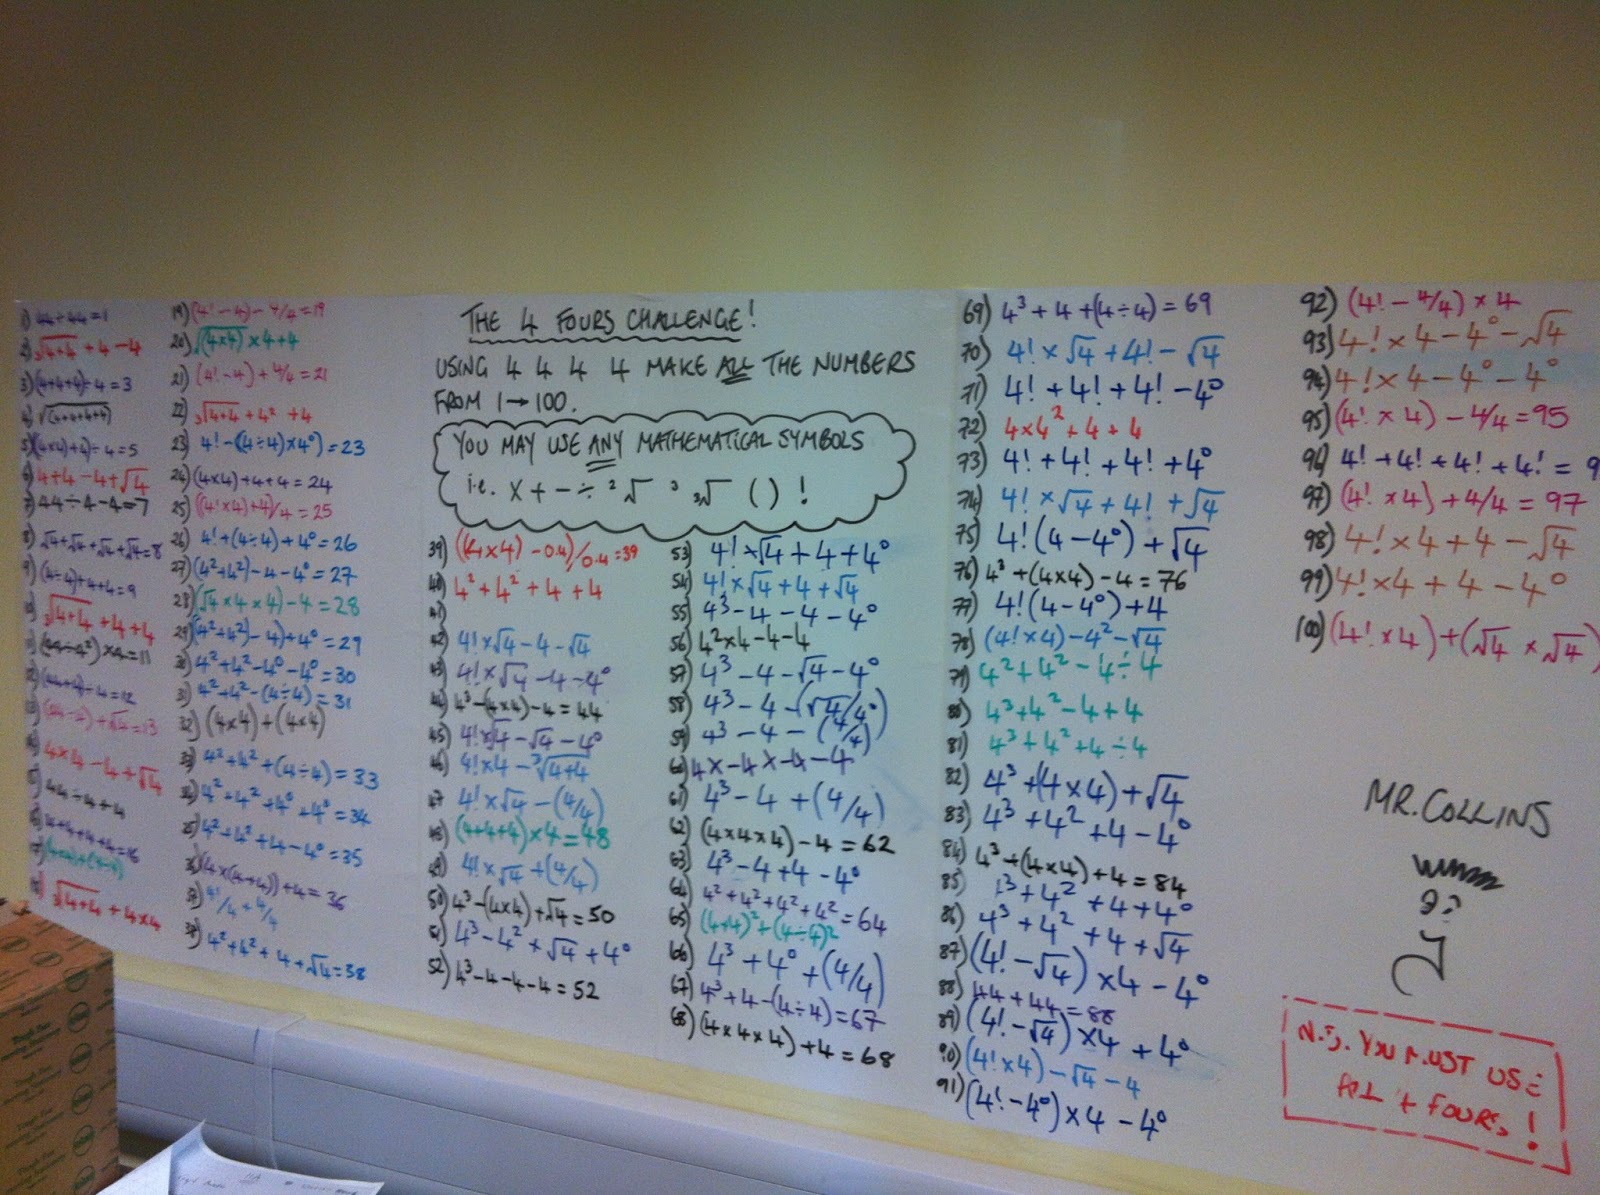 1) 44÷44=1
2) ∛(4+4) + 4 - 4
3) (4+4+4)÷4 = 3
4) √(4+4+4+4)
5) ((4×4)+4)÷4=5
6) 4+4-4+√4
7) 44÷4-4=7
8) √4+√4+√4+√4=8
9) (4÷4)+4+4=9
10) ∛(4+4) + 4 + 4
12) (44+4)÷4=12
13) (44-4)+√4=13
14) 4×4-4+√4
15) 44÷4+4
16) 4+4+4+4=16
18) ∛(4+4) + 4×4
19) (4!-4)-4/4=19
20) √(4×4) ×4+4
21) (4!-4)+4/4=21
22) ∛(4+4) + 4² + 4
23) 4!-((4÷4)×4⁰)=23
24) (4×4)+4+4=24
25) ((4!×4)+4)/4=25
26) 4!+(4÷4)+4⁰=26
27) (4²+4²)-4-4⁰=27
28) (√4×4×4)-4=28
29) (4²+4²)-4)+4⁰=29
30) 4²+4²-4⁰-4⁰=30
31) 4²+4²-(4÷4)=31
32) (4×4)+(4×4)
33) 4²+4²+(4÷4)=33
34) 4²+4²+4⁰+4⁰=34
35) 4²+4²+4-4⁰=35
36) (4×(4+4))+4=36
37) 4!/4+4/4
38) 4²+4²+4+√4=38
THE 4 FOURS CHALLENGE!
USING 4 4 4 4 MAKE ALL THE NUMBERS
FROM 1→100.
YOU MAY USE ANY MATHEMATICAL SYMBOLS
i.e. × + - ÷ ² √ ³ ∛ ( ) !
39) ((4×4)-0.4)/0.4=39
40) 4²+4²+4+4
41)
42) 4!×√4-4-√4
43) 4!×√4-4-4⁰
44) 4³-(4×4)-4=44
45) 4!×√4-√4-4⁰
46) 4!×4-∛(4+4)
47) 4!×√4-(4/4)
48) (4+4+4)×4=48
49) 4!×√4+(4/4)
50) 4³-(4×4)+√4=50
51) 4³-4²+√4+4⁰
52) 4³-4-4-4=52
53) 4!×√4+4+4⁰
54) 4!×√4+4+√4
55) 4³-4-4-4⁰
56) 4²×4-4-4
57) 4³-4-√4-4⁰
58) 4³-4-(√4/4⁰)
59) 4³-4-(4/4)
60) 4×-4×-4-4
61) 4³-4+(4/4)
62) (4×4×4)-4=62
63) 4³-4+4-4⁰
64) 4²+4²+4²+4²=64
65) (4+4)²+(4÷4)²
66) 4³+4⁰+(4/4)
67) 4³+4-(4÷4)=67
68) (4×4×4)+4=68
69) 4³+4+(4÷4)=69
70) 4!×√4+4!-√4
71) 4!+4!+4!-4⁰
72) 4×4²+4+4
73) 4!+4!+4!+4⁰
74) 4!×√4+4!+√4
75) 4!(4-4⁰)+√4
76) 4³+(4×4)-4=76
77) 4!(4-4⁰)+4
78) (4!×4)-4²-√4
79) 4²+4²-4÷4
80) 4³+4²-4+4
81) 4³+4²+4÷4
82) 4³+(4×4)+√4
83) 4³+4²+4-4⁰
84) 4³+(4×4)+4=84
85) 4³+4²+4+4⁰
86) 4³+4²+4+√4
87) (4!-√4)×4-4⁰
88) 44+44=88
89) (4!-√4)×4+4⁰
90) (4!×4)-√4-4
91) (4!-4⁰)×4-4⁰
92) (4!-4/4)×4
93) 4!×4-4⁰-√4
94) 4!×4-4⁰-4⁰
95) (4!×4)-4/4=95
96) 4!+4!+4!+4!=9
97) (4!×4)+4/4=97
98) 4!×4+4-√4
99) 4!×4+4-4⁰
100) (4!×4)+(√4×√4)
MR.COLLINS
N.B. YOU MUST USE
ALL 4 FOURS!